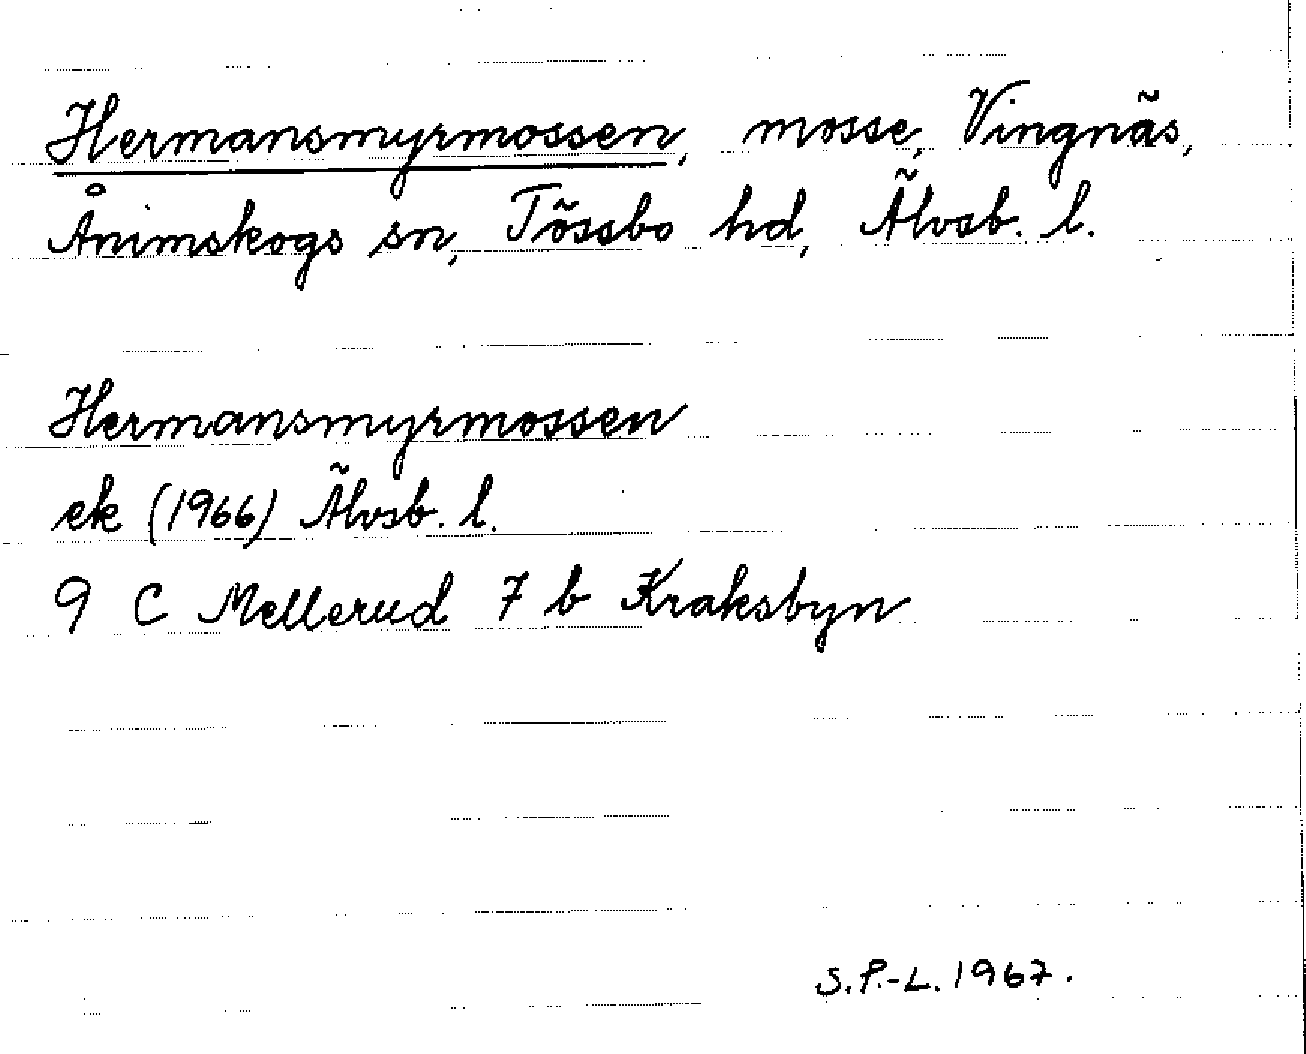 Hermansmyrmossen, mosse, Vingnäs,
Ånimskogs sn, Tössbo hd, Älvsb. l.
Hermansmyrmossen
ek (1966) Älvsb. l.
9 C Mellerud 7 b Kraksbyn
S.P.-L. 1967.